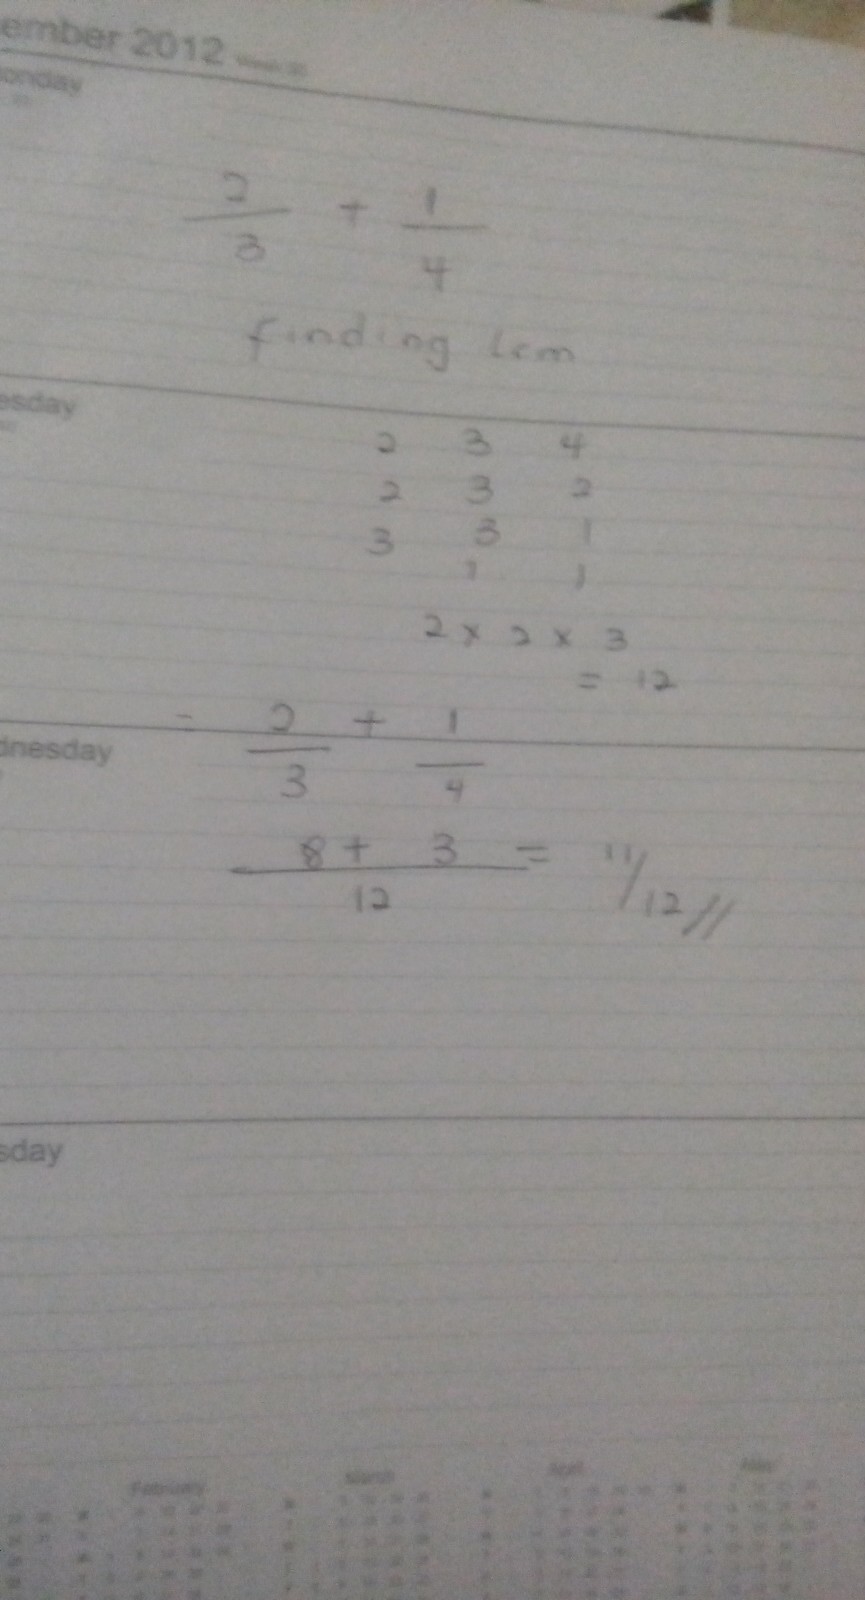 ember 2012
onday
2/3 + 1/4
finding lcm
esday
2 3 4
2 3 2
3 3 1
1 1
2 x 2 x 3
= 12
= 2/3 + 1/4
dnesday
8 + 3 = 11/12//
12
sday
February March April May